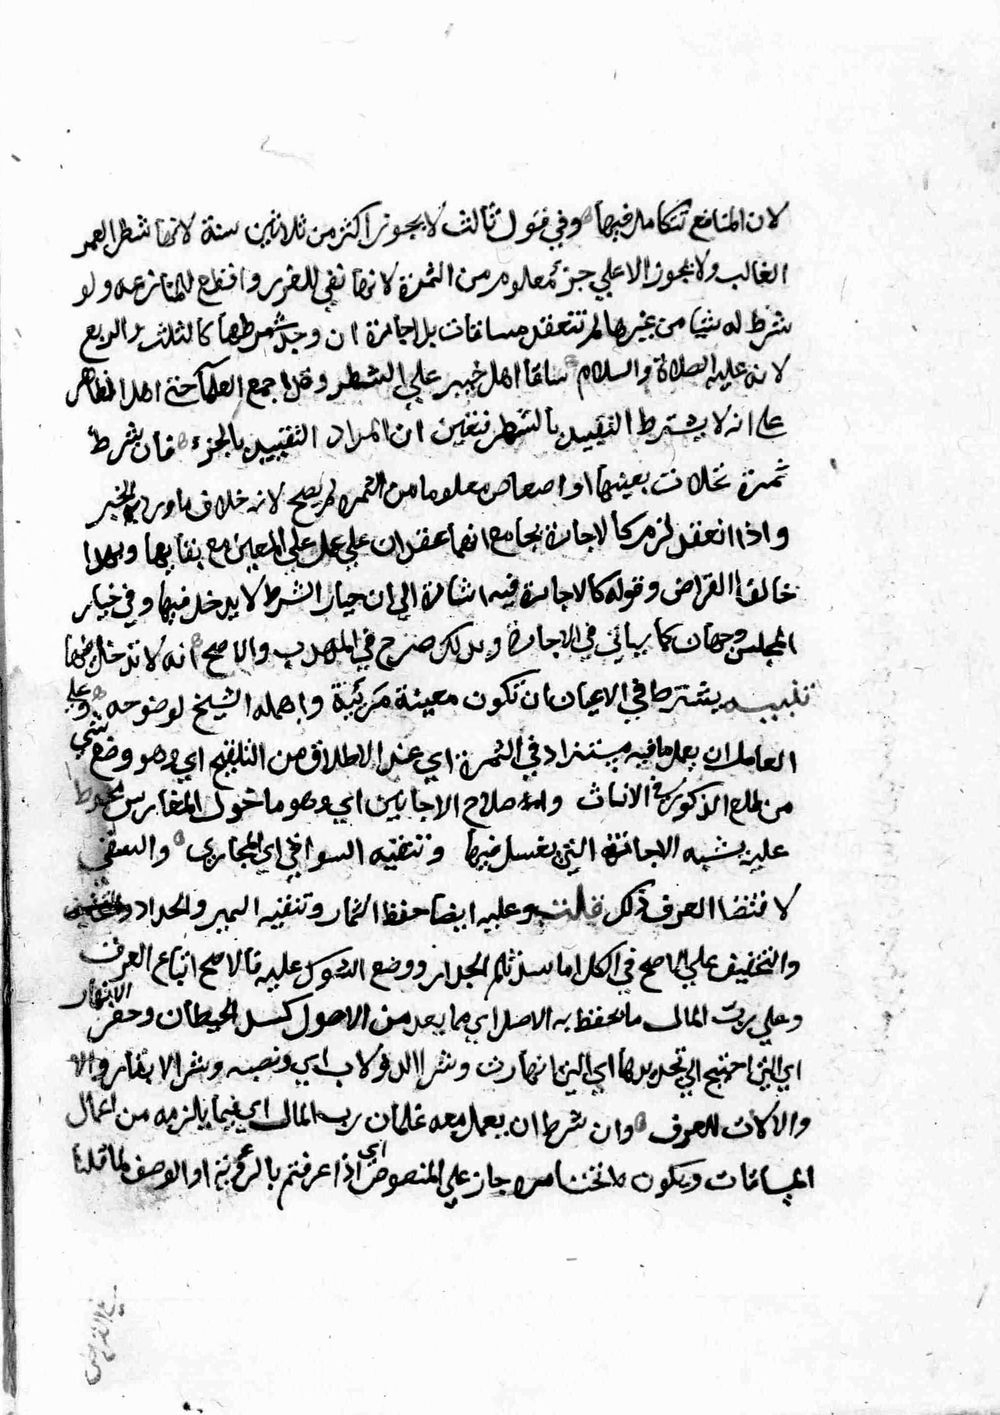 لان المنافع تتكامل فيها وفي قول ثالث لا يجوز اكثر من ثلاثين سنة لانها شطر العمر
الغالب ولا يجوز الا علي جزء معلوم من الثمرة لانها نفي للغرر واقطع للمنازعه ولو
شرط له شيا من غيرها لم تنعقد مساقات بل اجارة ان وجد شرطها كالثلث والربع
لانه عليه الصلاة والسلام ساقا اهل خيبر علي الشطر وقد اجمع العلما حتي اهل الظاهر
علي انه لا يشترط التقييد بالشطر فتعين ان المراد التقييد بالجزء فان شرط
ثمرة نخلات بعينها او اصعا معلوما من الثمر لم يصح لانه خلاف ما ورد به الخبر
واذا انعقد لزم كالاجارة بجامع انهما عقدان علي عمل علي المعين مع بقايها وبهذا
خالفا القراض وقوله كالاجارة فيه اشارة الي ان خيار الشرط لا يدخل فيها وفي خيار
المجلس وجهان كما ياتي في الاجارة وبذلك صرح في المهذب والاصح انه لا تدخل ايضا
تنبيه يشترط في الاعيان ان تكون معينة مرئية واهمله الشيخ لوضوحه وعلي
العامل ان يعمل ما فيه مستزاد في الثمرة اي عند الاطلاق من التلقيح اي وهو وضع شي
من طلع الذكور في الاناث واصلاح الاجاجين اي وهو ما حول المغارس محوط
عليه يشبه الاجانة التي يغسل فيها وتنقيه السواقي اي المجاري والسقي
لاقتضا العرف ذلك قلت وعليه ايضا حفظ الثمار وتنقيه البير والجداد
والتجفيف علي الاصح في الكل اما سد ثلم الجدار ووضع الشوك عليه فالاصح اتباع العرف
وعلي رب المال ما يحفظ به الاصل اي مما يعد من الاصول كسد الحيطان وحفر الانهار
اي التي احتيج الي تجديدها اي التي انهارت وشرا الدولاب اي ونصبه وشرا الابقار
والآلات للعرف وان شرط ان يعمل معه غلمان رب المال اي فيما يلزمه من اعمال
المساقات ويكون ما تحتاس جاز علي المنصوص اي اذا عرفتم بالرؤية او الوصف لما قلنا